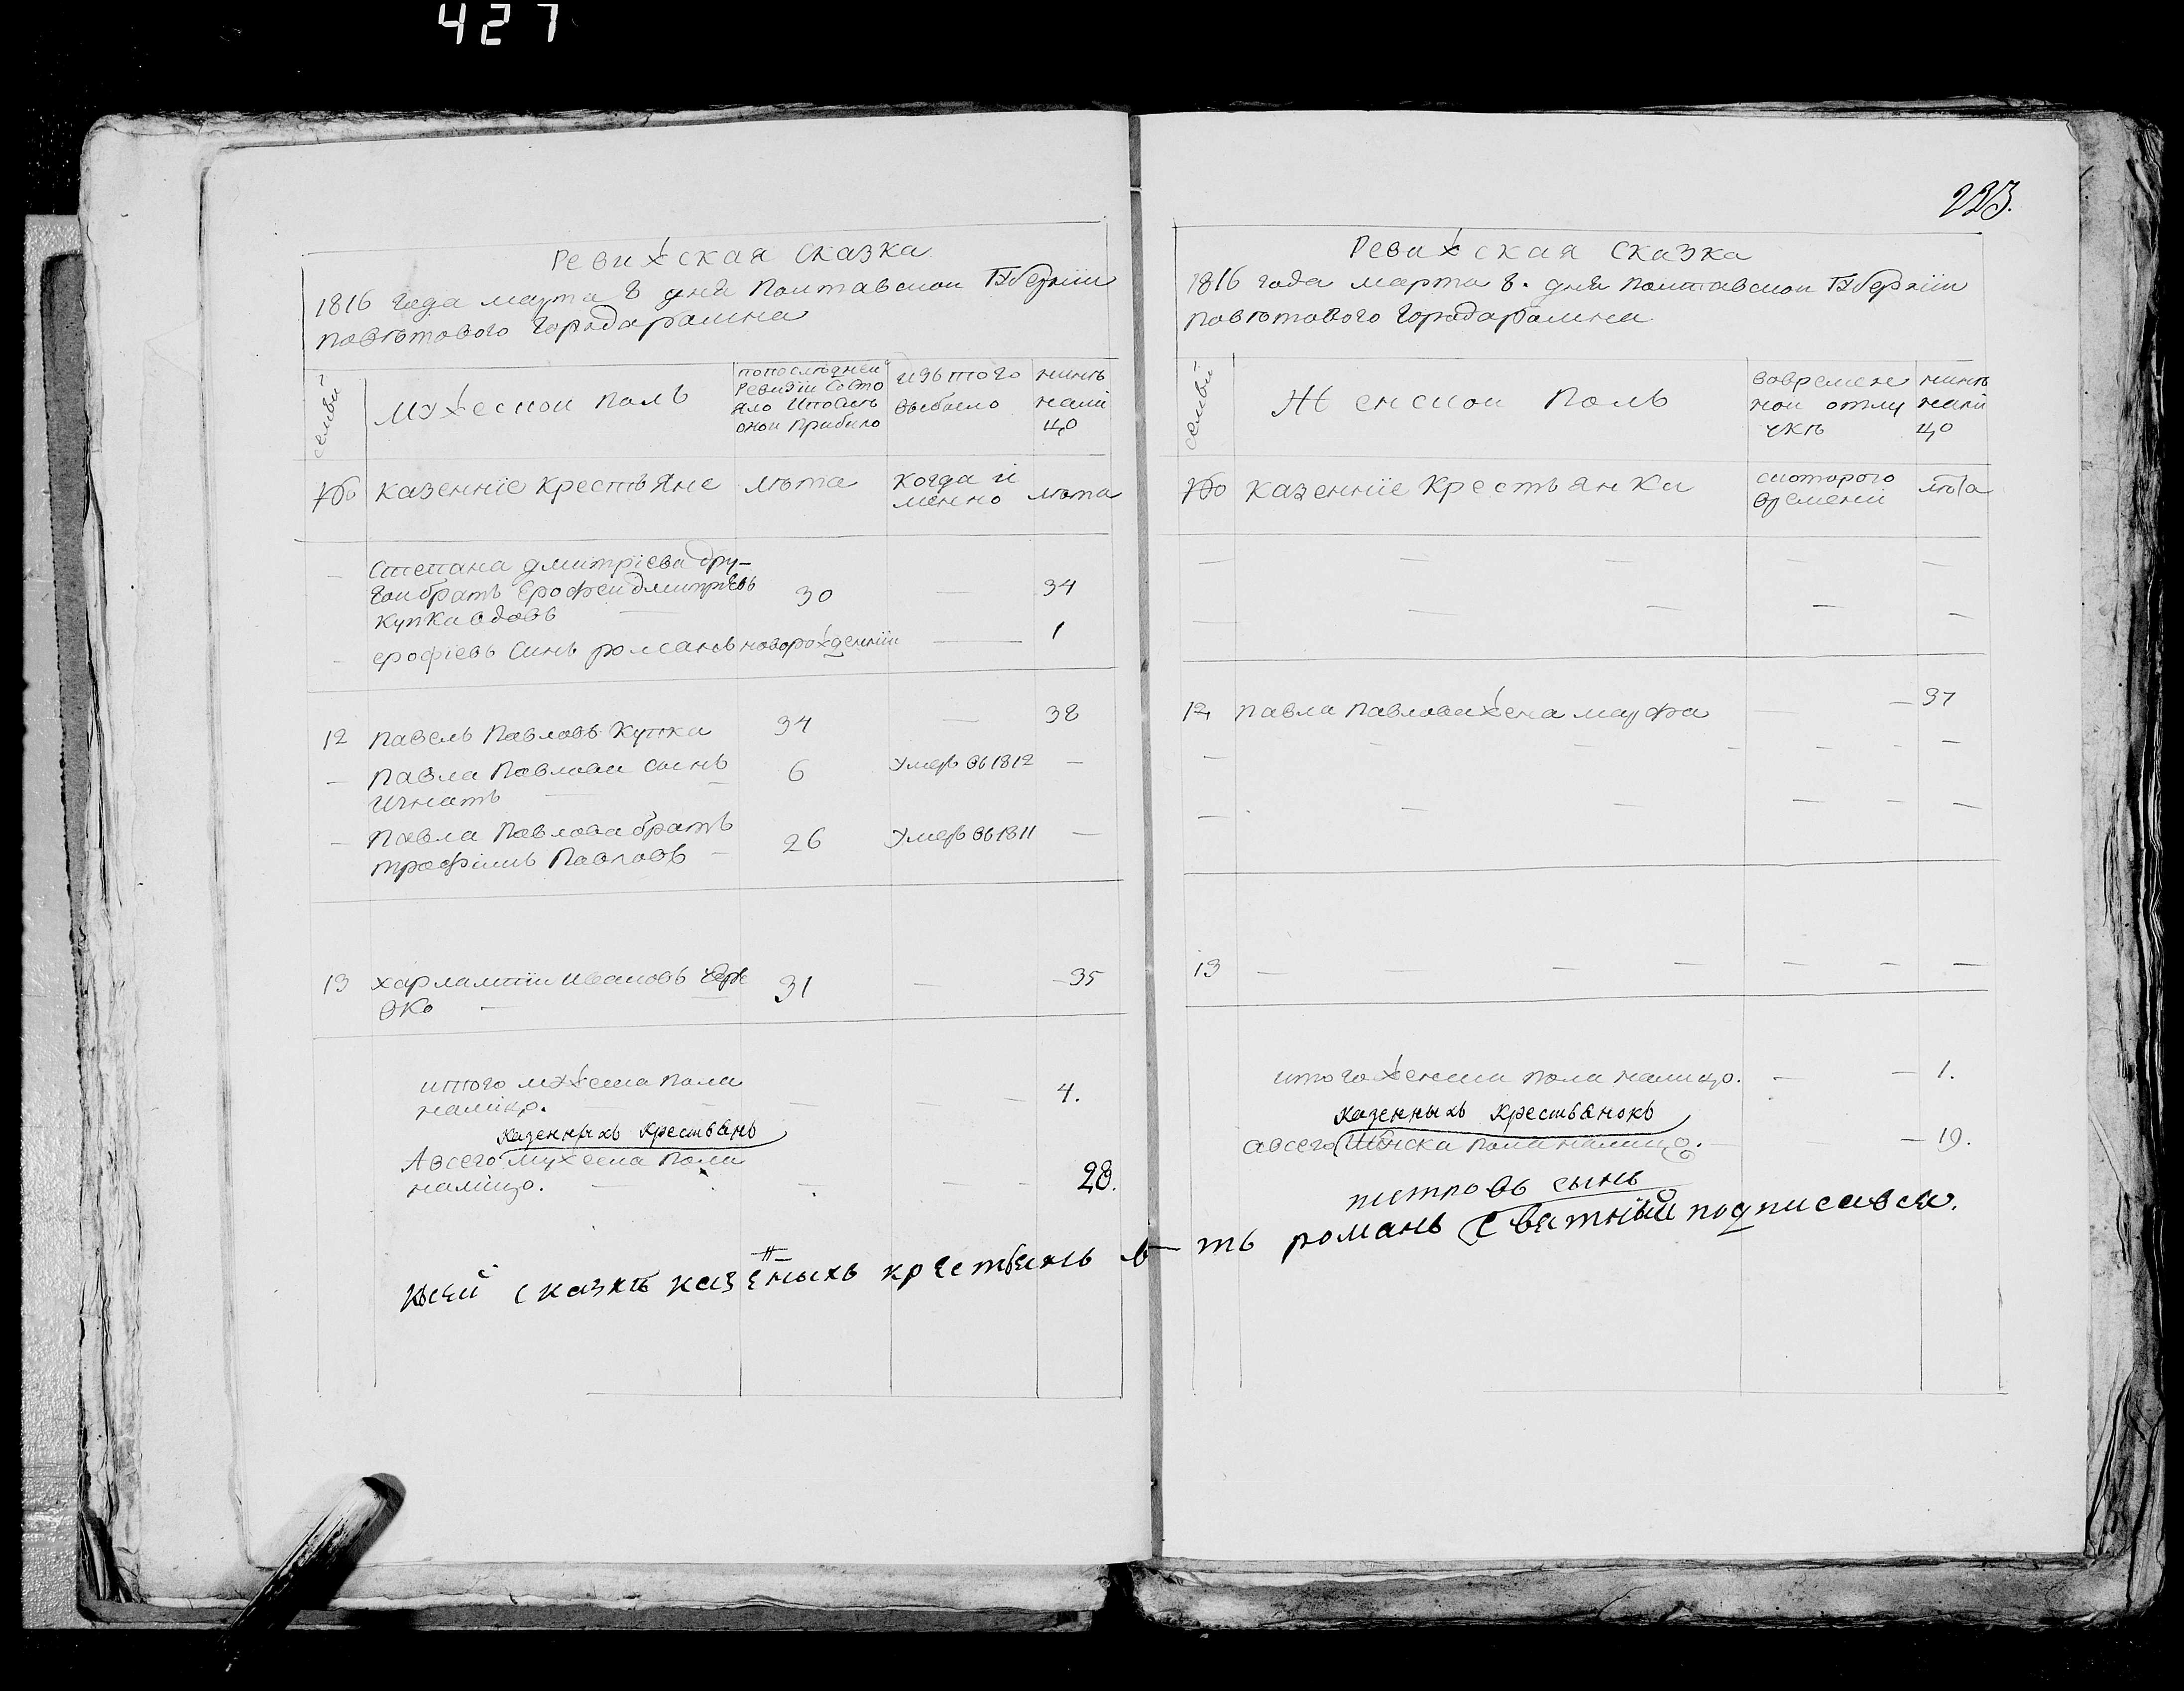 427
223.
Ревизская сказка
1816 года марта 8 дня Полтавской Губернїи
повѣтового города ромна
семьи
мужескои полъ
по последней
Ревизїи Состо
яло И после
оной Прибыло
изъ того
выбыло
нинѣ
нали
цо
№
казеннїе крестьяне
лѣта
когда и
мѣнно
лѣта
Степана дмитрїева дру-
гои братъ Ерофеи дмитрїевъ
купка вдовъ
30 — 34
ерофїевъ синъ романъ новорожденнїи — 1
12 павелъ Павловъ Купка 34 — 38
— Павла Павлова синъ 6 Умеръ въ 1812 —
Игнатъ
— Павла Павлова братъ 26 Умеръ въ 1811 —
трофимъ Павловъ —
13 харлампїи Ивановъ
31 — 35
итого мужеска пола
налицо. — 4.
казенныхъ крестьянъ
Авсего мужеска пола
налицо. — 28.
Ревизская сказка
1816 года марта 8. дня полтавской Губернїи
повѣтового города ромна
семьи
Женскои полъ
вовремен
нои отлу
чкѣ
нинѣ
нали
цо
№
казеннїе крестьянки
скоторого
времени
лѣта
12 павла Павлова жена марфа — 37
13 — — — — — —
итого женска пола налицо. — 1.
казенныхъ крестьянокъ
авсего женска пола налицо. — 19.
петровъ сынъ
ксей сказкѣ казеныхъ крестьянъ романъ подписався.